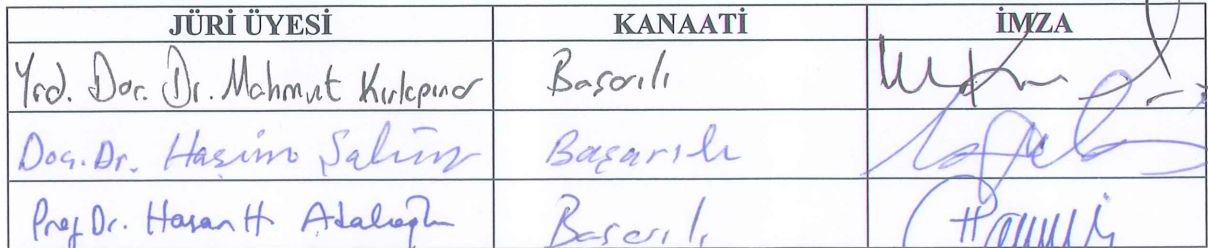 JÜRİ ÜYESİ KANAATİ İMZA
Yrd. Doç. Dr. Mahmut Kırkpınar Başarılı
Doç. Dr. Haşim Şahin Başarılı
Prof. Dr. Hasan H. Adalıoğlu Başarılı